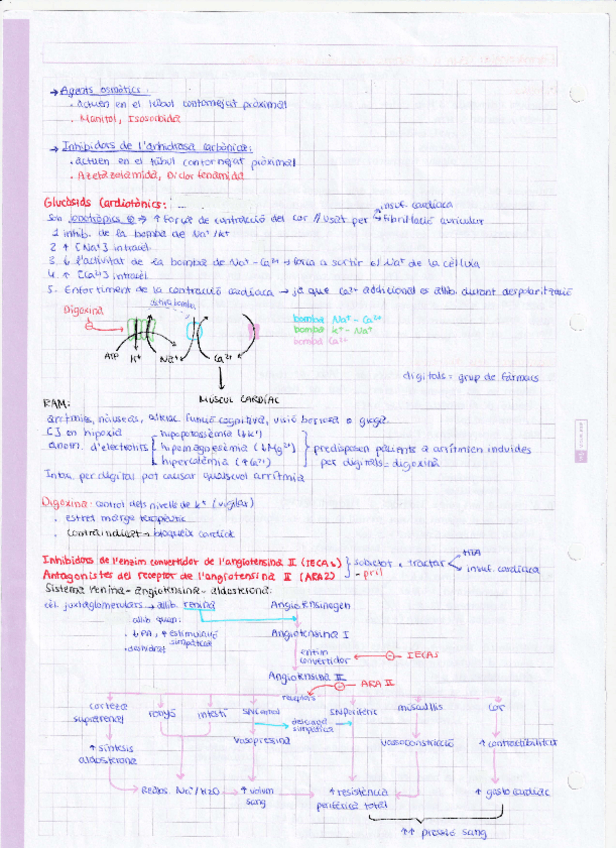 → Agents osmòtics:
. Actuen en el túbul contornejat pròximal
. Manitol, Isosorbida
→ Inhibidors de l'anhidrasa carbònica:
. actuen en el túbul contornejat pròximal
. Azetazolamida, Diclorfenamida
Glucòsids Cardiotònics:
insuf. cardíaca
Són ionotròpics ⊕ → ↑ Força de contracció del cor // Usat per fibril·lació auricular
1 inhib. de la bomba de Na+/K+
2 ↑ [Na+] intracel
3. ↓ l'activitat de la bomba de Na+-Ca2+ → força a sortir el Na+ de la cèl·lula
4. ↑ [Ca2+] intracel
5. Enfortiment de la contracció cardíaca → ja que Ca2+ addicional es allib. durant despolarització
Digoxina
bomba Na+ - Ca2+
bomba K+ - Na+
bomba Ca2+
ATP K+ Na+ Ca2+
digitals = grup de fàrmacs
MÚSCUL CARDÍAC
RAM:
arítmies, nàuseas, alterac. funció cognitiva, visió borrosa o groga
CI en hipoxia
hipopotasèmia (↓K+)
anom. d'electrolits hipomagnesèmia (↓Mg2+) predisposen patients a arítmien induides
hipercalcèmia (↑Ca2+) per digitals = digoxina
Intox. per digital pot causar qualsevol arrítmia
Digoxina: control dels nivells de K+ (vigilar)
. estret marge terapèutic
. contraindicat → bloqueix cardíac
Inhibidors de l'enzim convertidor de l'angiotensina II (IECAs)
Antagonistes del receptor de l'angiotensina II (ARA2)
sobretot x tractar
HTA
insuf. cardíaca
-pril
Sistema renina-angiotensina-aldosterona:
cèl. juxtaglomerulars → allib. renina
Angiotensinogen
allib quan:
. ↓PA, ↑ estimulació simpàtica
. deshidrat
Angiotensina I
enzim convertidor
IECAS
Angiotensina II
receptors
ARA II
corteza suprarenal
ronyó
intestí
SNCentral
SNPerifèric
músculllis
cor
descarga simpàtica
↑ síntesis aldosterona
Vasopresina
vasoconstricció
↑ contractibilitat
Reabs Na+/H2O
↑ volum sang
↑ resistència perifèrica total
↑ gasto cardíac
↑↑ pressió sang